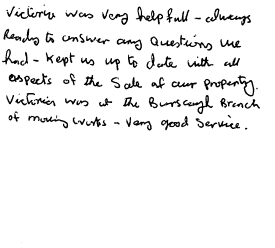 Victoria was very helpfull - always
Ready to answer any Questions we
had - kept us up to date with all
aspects of the Sale of our property.
Victoria was at the Burscough Branch
of moving works - very good service.